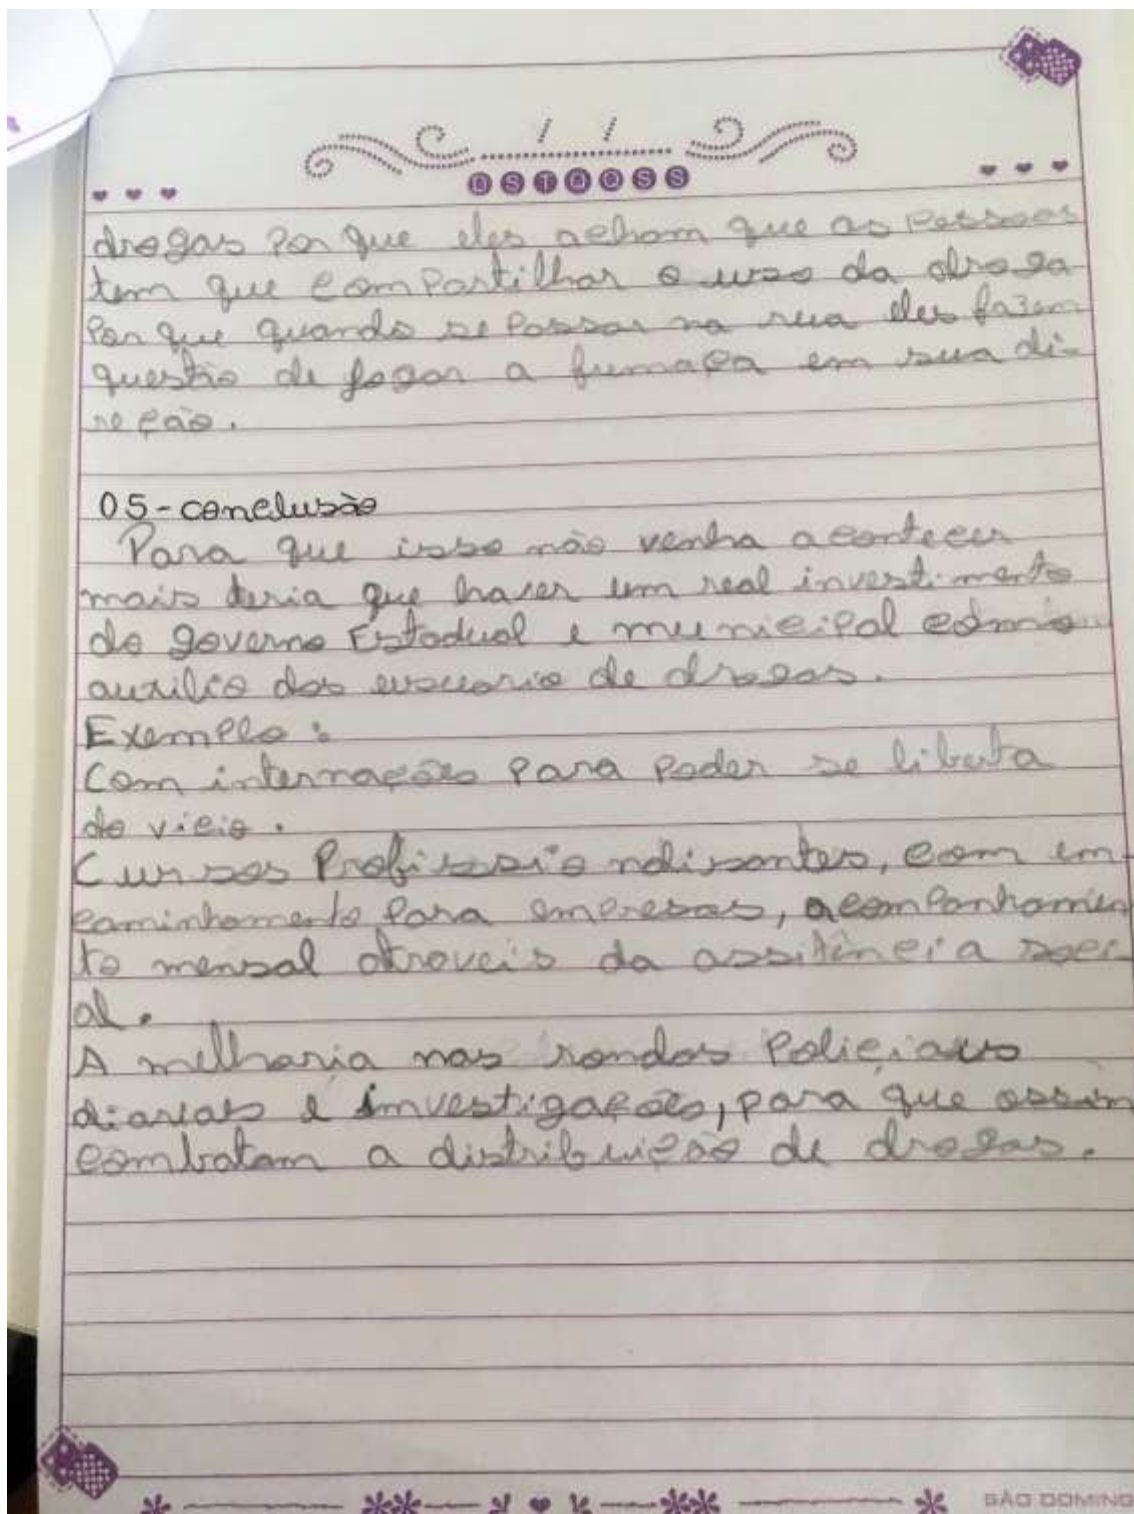 / /
D S T Q Q S S
drogas Por que eles acham que as Pessoas
tem que comPartilhar o uso da droga
Por que quando se Passar na rua eles fazem
questão de jogar a fumaça em sua di-
reção.
05-conclusão
Para que isso não venha acontecer
mais teria que haver um real investimento
do governo Estadual e municiPal
auxilio dos usuario de drogas.
ExemPlo:
Com internações Para Poder se liberta
do vicio.
Cursos com em-
caminhamento Para emPresas, acomPanhamen
to mensal atraveis da assitência soci-
al.
A melharia nas rondas Policiais
diariais e investigações, para que assim
combatam a distribuição de drogas.
SÃO DOMING